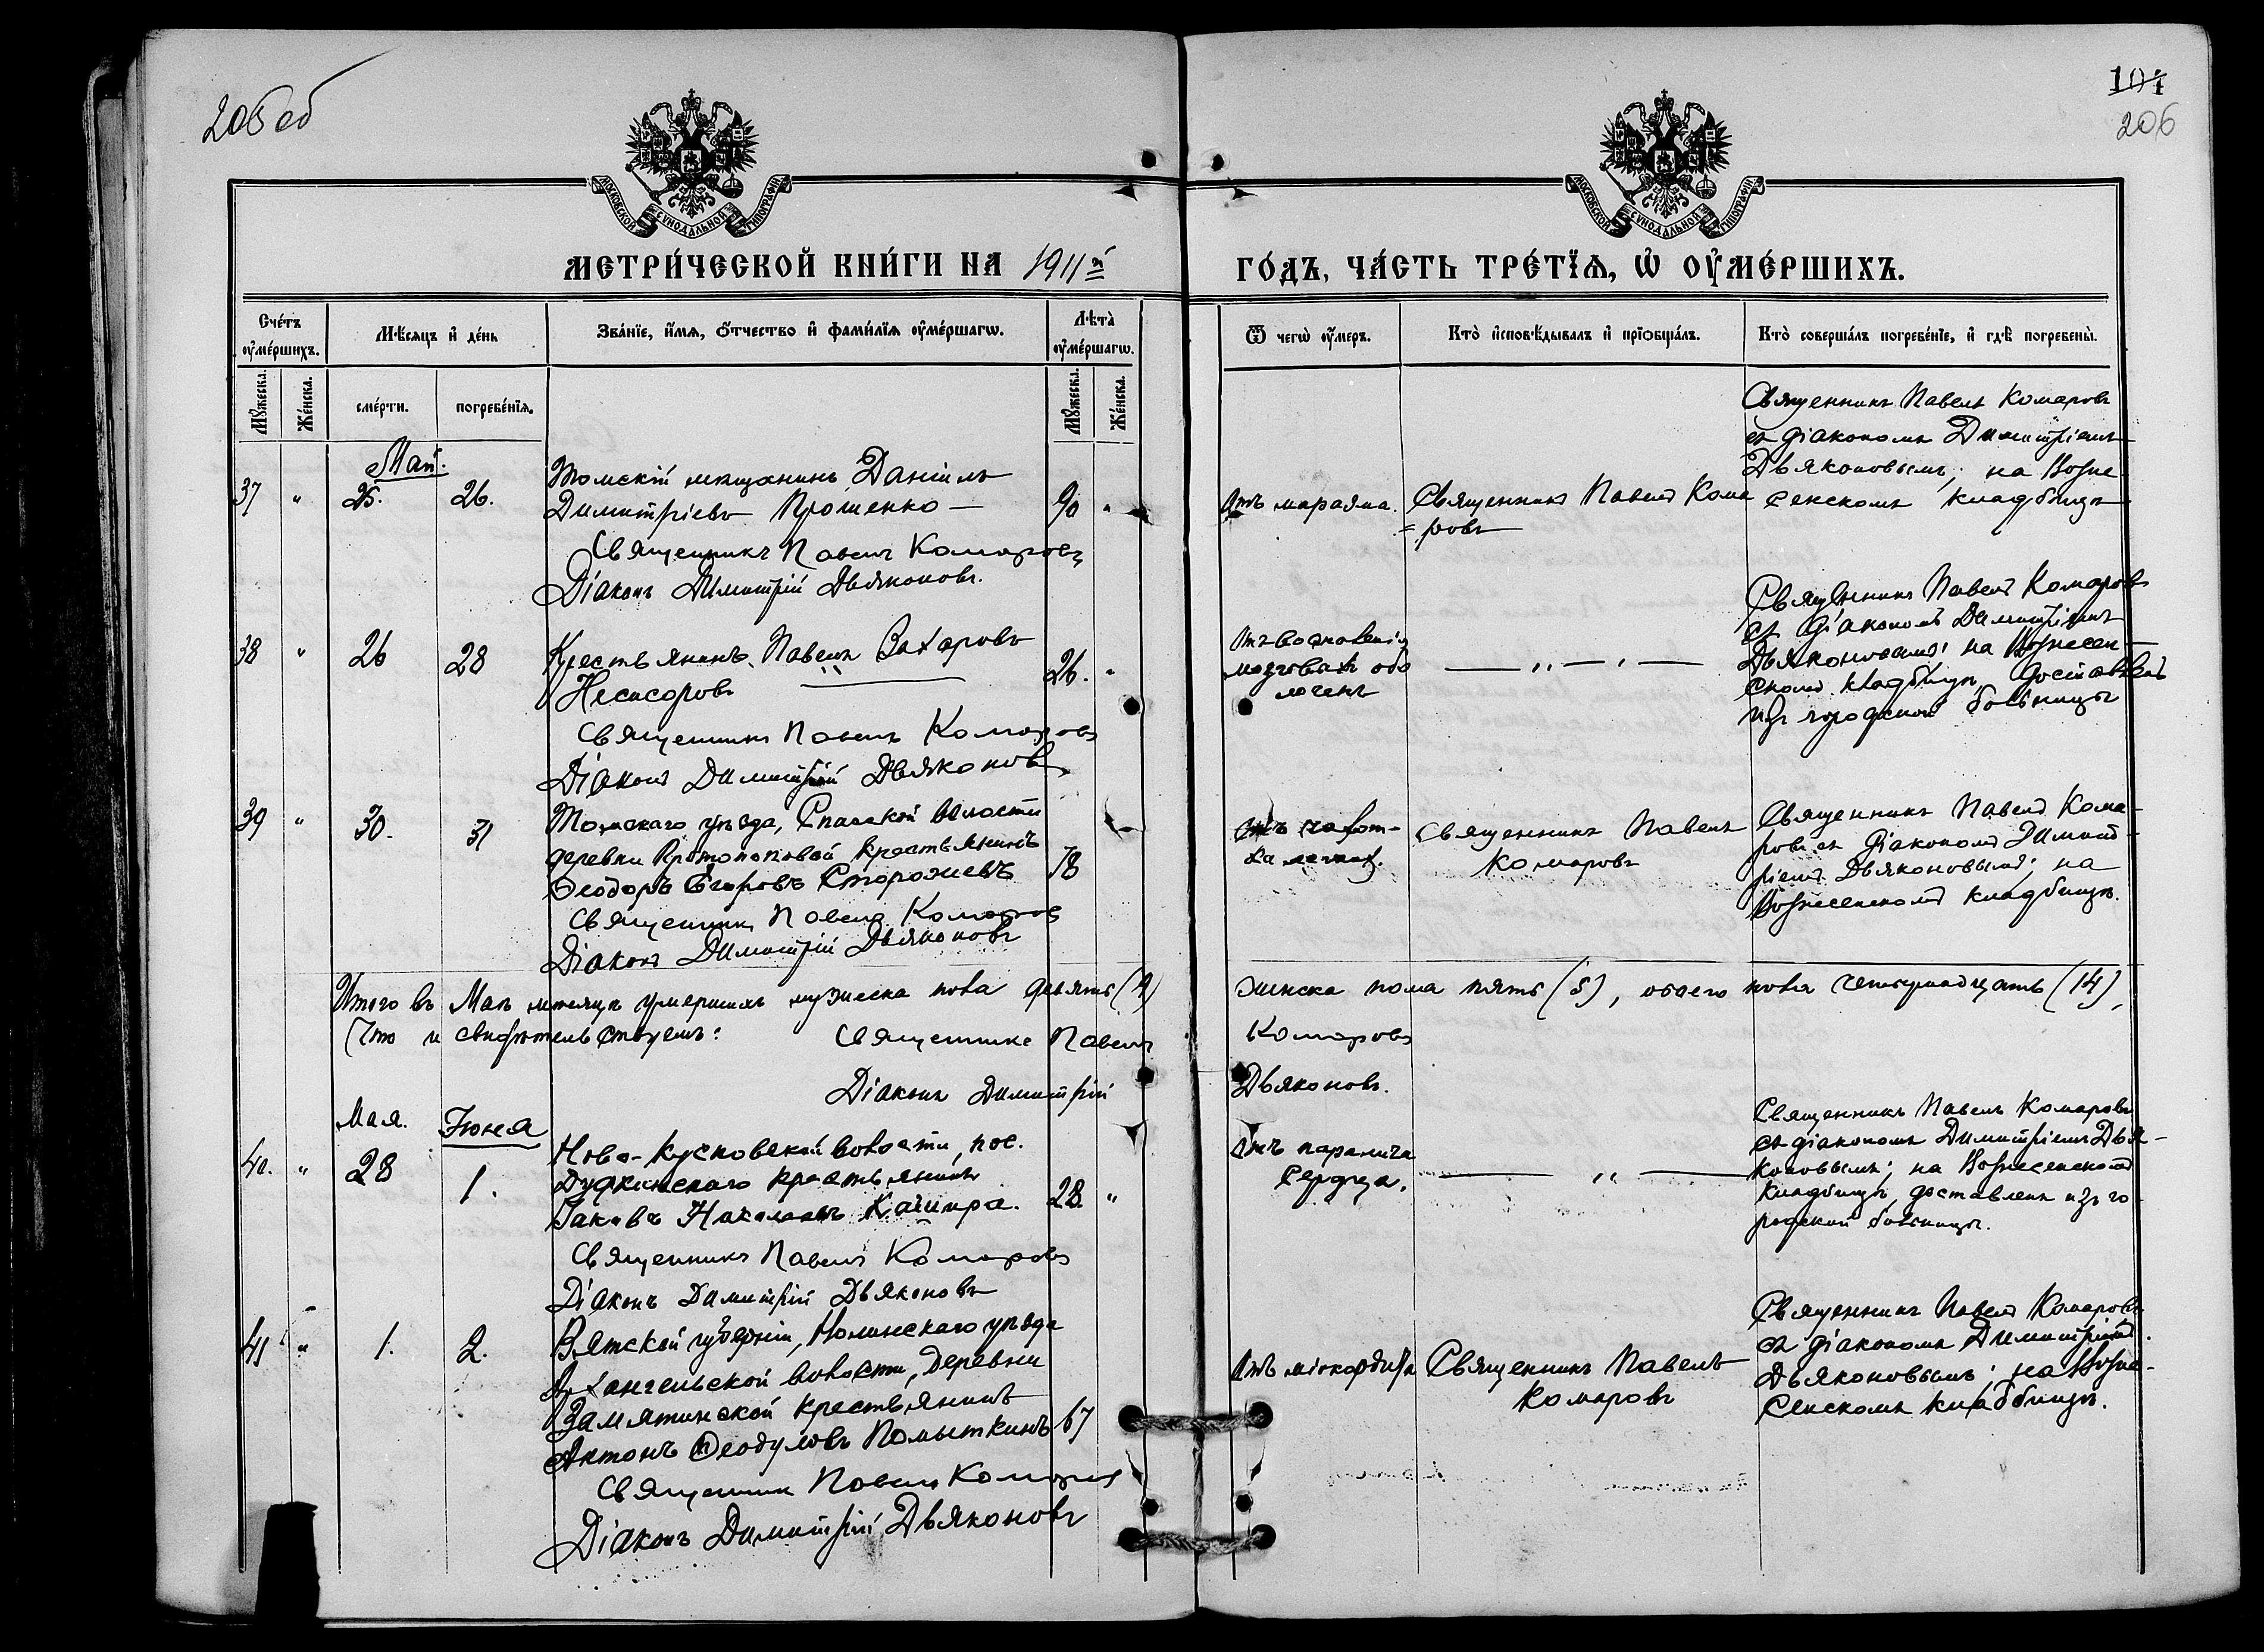 205 об
104
206
МОСКОВСКОЙ СѴНОДАЛЬНОЙ ТИПОГРАФІИ
МОСКОВСКОЙ СѴНОДАЛЬНОЙ ТИПОГРАФІИ
МЕТРИ́ЧЕСКОЙ КНИ́ГИ НА 1911й
ГО́ДЪ, ЧА́СТЬ ТРЕ́ТЇѦ, Ѡ҆ ОУ҆МЕ́РШИХЪ.
Сче́тъ оу҆ме́ршихъ.
Мѣ́сяцъ и҆ де́нь
Зва́нїе, и҆́мѧ, ѻ҆́тчество и҆ фами́лїѧ оу҆ме́ршагѡ.
Лѣ́та оу҆ме́ршагѡ.
Мꙋ́жеска.
Же́нска.
сме́рти.
погребе́нїѧ.
Мꙋ́жеска.
Же́нска.
Ѿ чегѡ̀ оу҆́меръ.
Кто̀ и҆сповѣ́дывалъ и҆ прїѡбща́лъ.
Кто̀ соверша́лъ погребе́нїе, и҆ гдѣ̀ погребены̀.
Май.
37 " 25. 26.
Томскій мѣщанинъ Даніилъ
Димитріевъ Прошенко —
90 "
Священникъ Павелъ Комаровъ
Діаконъ Димитрій Дьяконовъ.
Отъ маразма.
Священникъ Павелъ Кома
=ровъ
Священникъ Павелъ Комаровъ
съ діакономъ Димитріемъ
Дьяконовымъ; на Возне-
сенскомъ кладбищѣ
38 " 26 28
Крестьянинъ Павелъ Захаровъ
26. "
Священникъ Павелъ Комаровъ
Діаконъ Димитрій Дьяконовъ
Отъ воспаленія
мозговыхъ обо
лочекъ
— " — " —
Священникъ Павелъ Комаровъ
съ діакономъ Димитріемъ
Дьяконовымъ; на Вознесен-
скомъ кладбищѣ, доставленъ
изъ городской больницы
39 " 30. 31
Томскаго уѣзда, Спасской волости
деревни Протопоповой крестьянинъ
Ѳеодоръ Егоровъ Сторожевъ
78
Священникъ Павелъ Комаровъ
Діаконъ Димитрій Дьяконовъ
Отъ
легких.
Священникъ Павелъ
Комаровъ
Священникъ Павелъ Кома-
ровъ съ діакономъ Димит-
ріемъ Дьяконовымъ; на
Вознесенскомъ кладбищѣ.
Итого въ Маѣ мѣсяцѣ умершихъ мужеска пола девять (9)
женска пола пять (5), обоего пола четырнадцать (14),
Что и свидѣтельствуемъ: Священникъ Павелъ
Комаровъ
Діаконъ Димитрій
Дьяконовъ.
Мая. Іюня
40. " 28 1.
Ново-Кусковской волости, пос.
крестьянинъ
Іаковъ Николаевъ Качира.
28. "
Священникъ Павелъ Комаровъ
Діаконъ Димитрій Дьяконовъ
Отъ паралича
сердца.
— " —
Священникъ Павелъ Комаровъ
съ діакономъ Димитріемъ Дья-
коновымъ; на Вознесенскомъ
кладбищѣ, доставленъ изъ го-
родской больницы.
41 " 1. 2.
Вятской губерніи, Нолинскаго уѣзда
Архангельской волости, деревни
Замятинской крестьянинъ
Антонъ Ѳеодуловъ Помыткинъ
67
Священникъ Павелъ Комаровъ
Діаконъ Димитрій Дьяконовъ
Отъ міокардита
Священникъ Павелъ
Комаровъ
Священникъ Павелъ Комаровъ
съ діакономъ Димитріемъ
Дьяконовымъ; на Возне-
сенскомъ кладбищѣ.